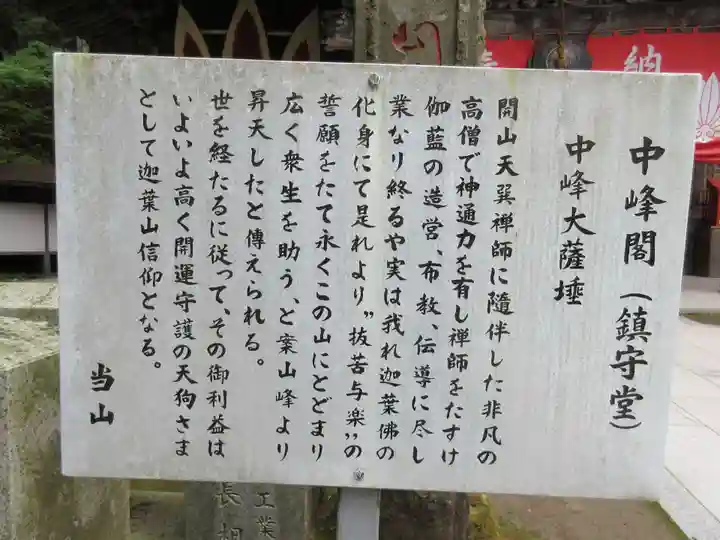 中峰閣（鎮守堂）
中峰大薩埵
開山天巽禅師に随伴した非凡の
高僧で神通力を有し禅師をたすけ
伽藍の造営、布教、伝導に尽し
業なり終るや実は我れ迦葉佛の
化身にて是れより〝抜苦与楽〟の
誓願をたて永くこの山にとどまり
広く衆生を助う、と案山峰より
昇天したと傳えられる。
世を経たるに従って、その御利益は
いよいよ高く開運守護の天狗さま
として迦葉山信仰となる。
当山
納
工業
長